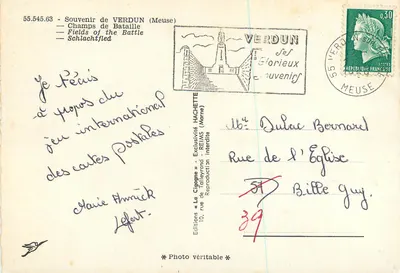 55.545.63 - Souvenir de VERDUN (Meuse)
— Champs de Bataille
— Fields of the Battle
— Schlachtfled
VERDUN
ses
Glorieux
Souvenirs
0,30
55 VERDUN
MEUSE
Je t'écris
à propos du
jeu international
des cartes postales
Marie Annick
Lefort.
Editions "La Cigogne" - Exclusivité HACHETTE
10, rue de Talleyrand - REIMS (Marne)
Reproduction interdite
Mr Dulac Bernard
Rue de l'Église
Bille Guy.
39
* Photo véritable *